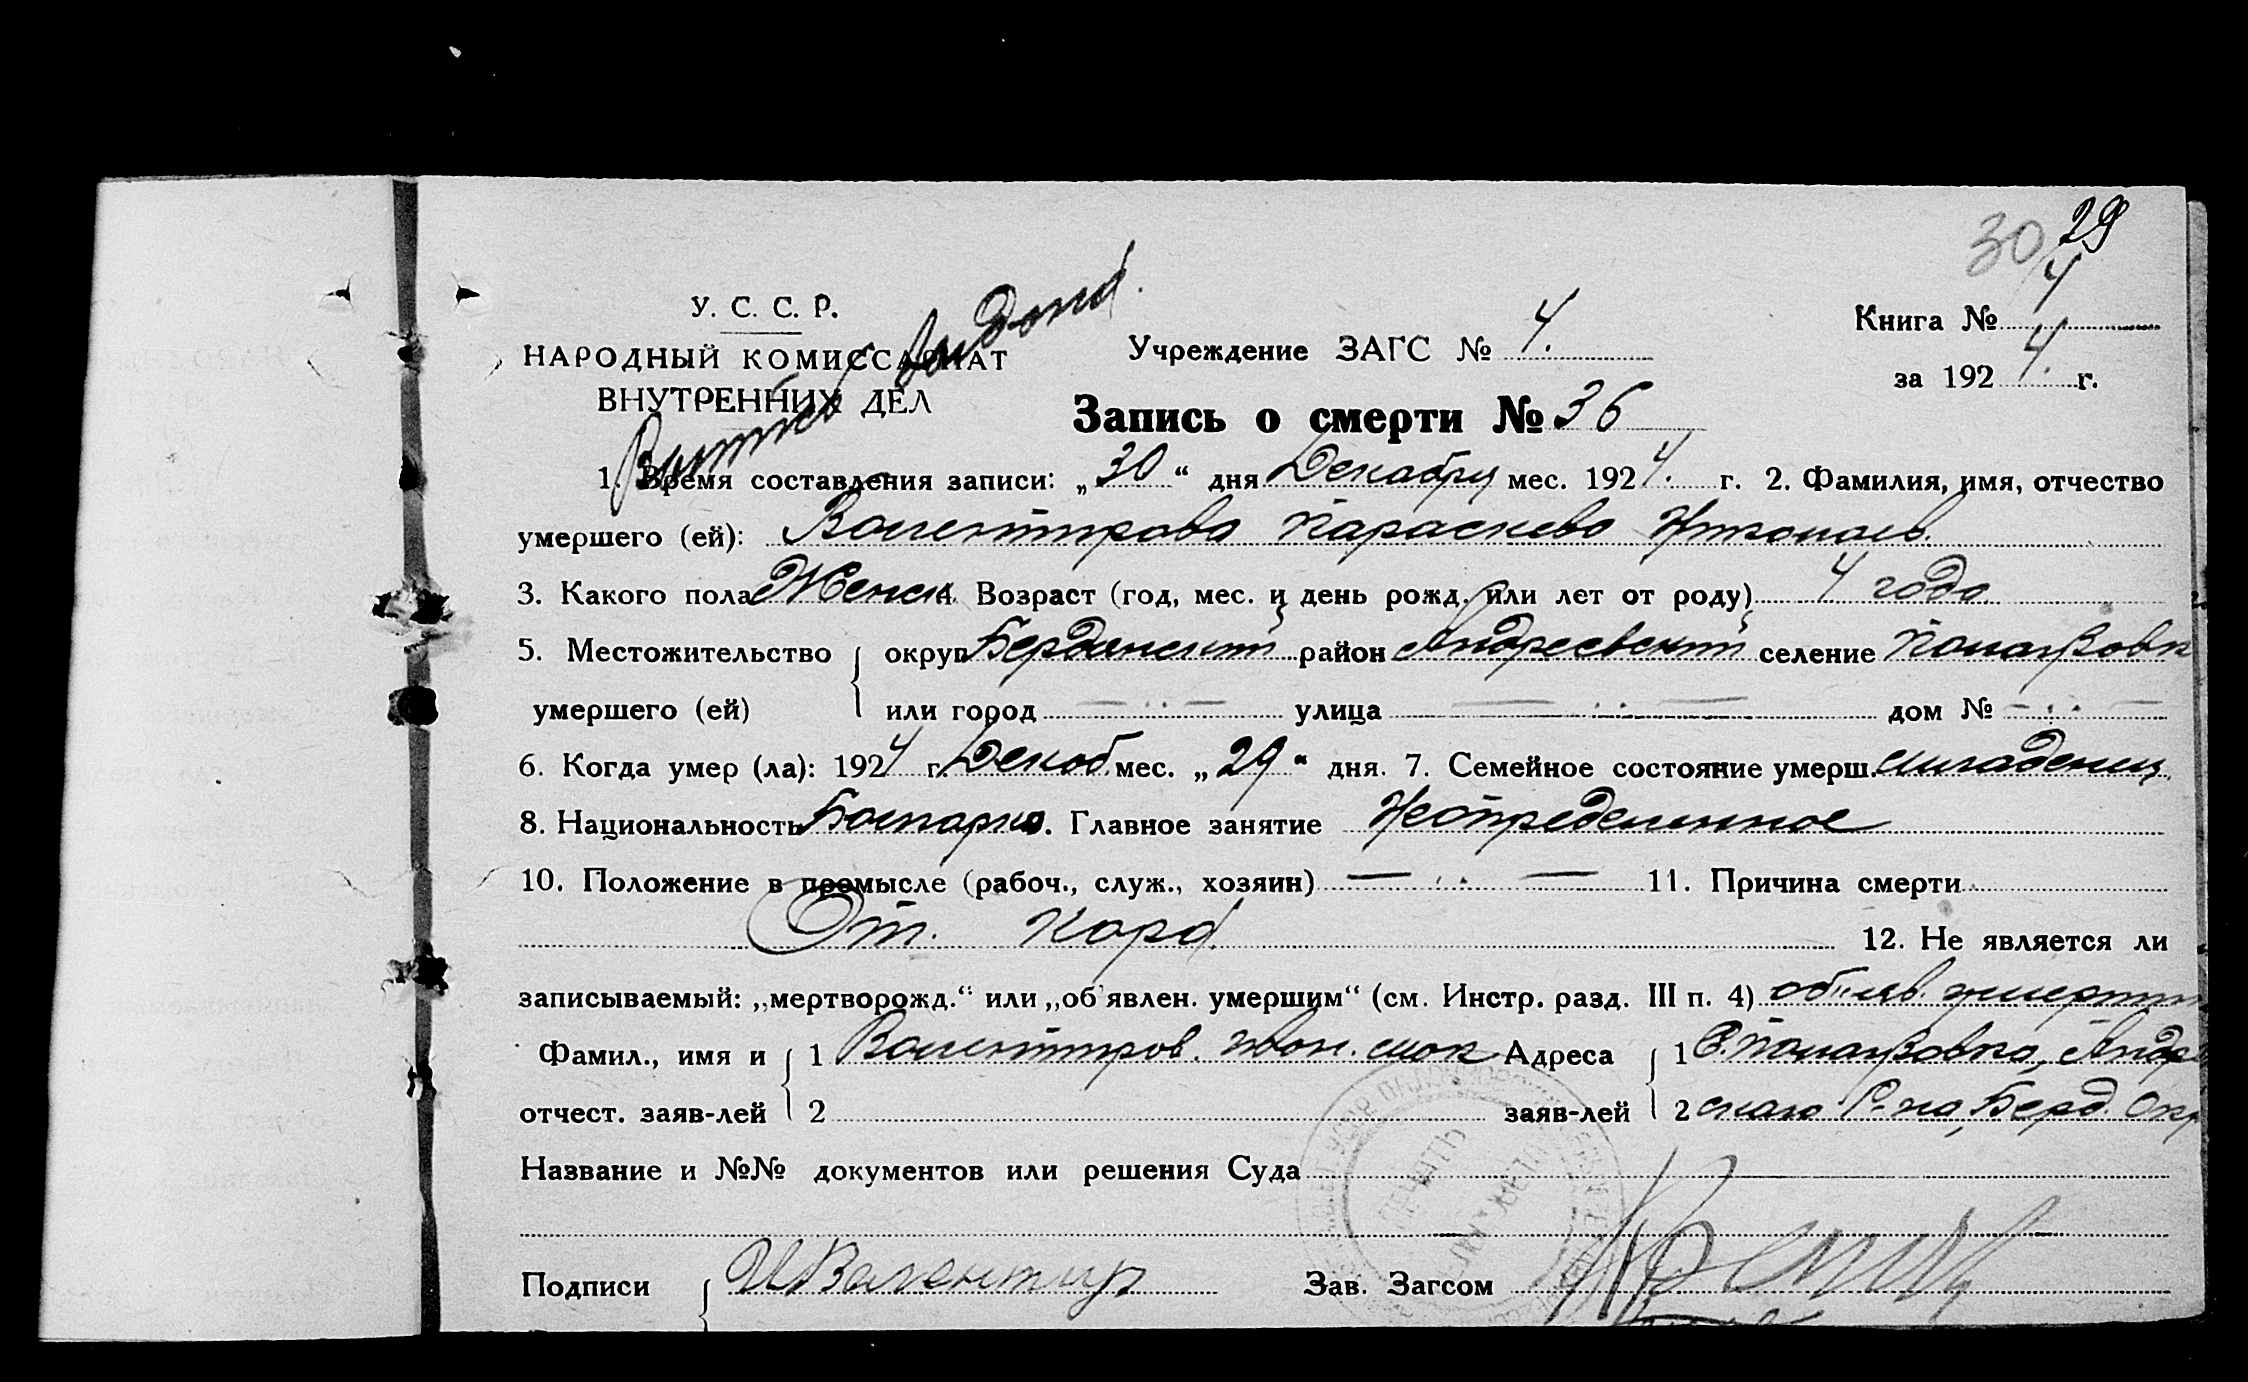 30 29
У. С. С. Р.
НАРОДНЫЙ КОМИССАРИАТ
ВНУТРЕННИХ ДЕЛ
Выпись выдана.
Учреждение ЗАГС № 4.
Книга № 4
за 1924. г.
Запись о смерти № 36
1. Время составления записи: „30“ дня Декабря мес. 1924. г. 2. Фамилия, имя, отчество
умершего (ей): Валентирова Параскева
3. Какого пола Женск 4. Возраст (год, мес. и день рожд. или лет от роду) 4 года
5. Местожительство округ Бердянский район Андреевский селение
умершего (ей) или город — ·· — улица — ·· — дом № — ·· —
6. Когда умер (ла): 1924 г. Декаб мес. „29“ дня. 7. Семейное состояние умерш. младенец
8. Национальность Болгарка 9. Главное занятие Неопределенное
10. Положение в промысле (рабоч., служ., хозяин) — ·· — 11. Причина смерти
От. Кора 12. Не является ли
записываемый: „мертворожд.“ или „об'явлен. умершим“ (см. Инстр. разд. III п. 4)
Фамил., имя и 1 Валентиров. Адреса 1 С. Андре
отчест. заяв-лей 2 заяв-лей 2 скаго Р-на, Берд. Окр
Название и №№ документов или решения Суда
Подписи И Валентир Зав. Загсом